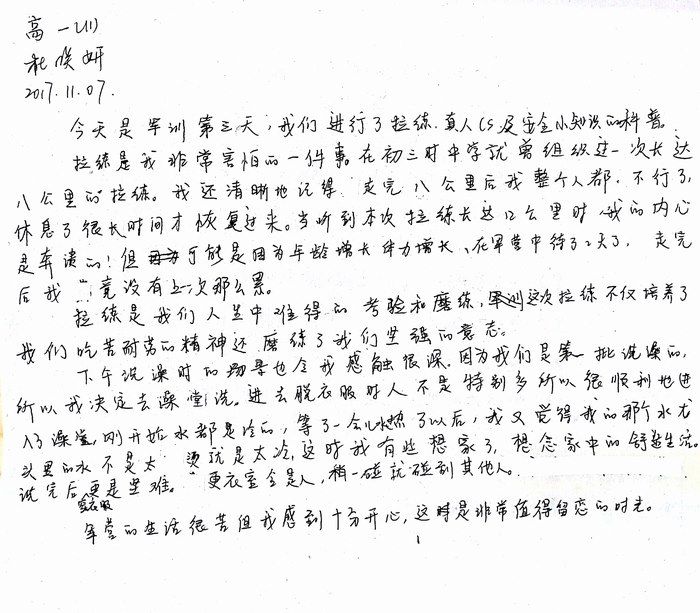 高一(11)
杜焕妍
2017.11.07.
今天是军训第三天,我们进行了拉练.真人CS及安全小知识的科普。
拉练是我非常害怕的一件事。在初三时中学就曾组织过一次长达
八公里的拉练。我还清晰地记得,走完八公里后我整个人都.不行了,
休息了很长时间才恢复过来。当听到本次拉练长达12公里时,我的内心
是奔溃的!但可能是因为年龄增长体力增长、在军营中待了2天了,走完
后我竟没有上次那么累。
拉练是我们人生中难得的考验和磨练,这次拉练不仅培养了
我们吃苦耐劳的精神还磨练了我们坚强的意志。
下午洗澡时的场景也令我感触很深。因为我们是第一批洗澡的,
所以我决定去澡堂洗。进去脱衣服时人不是特别多所以很顺利地进
入了澡堂,刚开始水都是冷的,等了一会儿水热了以后,我又觉得我的那个水龙
头里的水不是太烫就是太冷,这时我有些想家了,想念家中的舒适生活。
洗完后穿衣服更是坚难。更衣室全是人,稍一碰就碰到其他人。
军营的生活很苦但我感到十分开心,这时是非常值得留恋的时光。